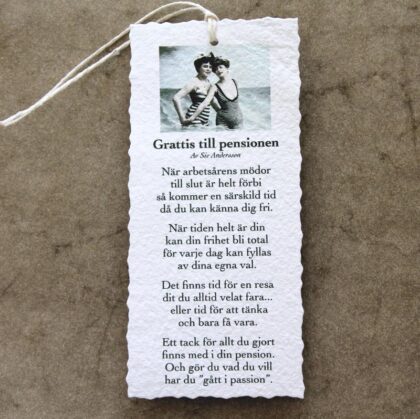 Grattis till pensionen
Av Siv Andersson
När arbetsårens mödor
till slut är helt förbi
så kommer en särskild tid
då du kan känna dig fri.
När tiden helt är din
kan din frihet bli total
för varje dag kan fyllas
av dina egna val.
Det finns tid för en resa
dit du alltid velat fara...
eller tid för att tänka
och bara få vara.
Ett tack för allt du gjort
finns med i din pension.
Och gör du vad du vill
har du "gått i passion".